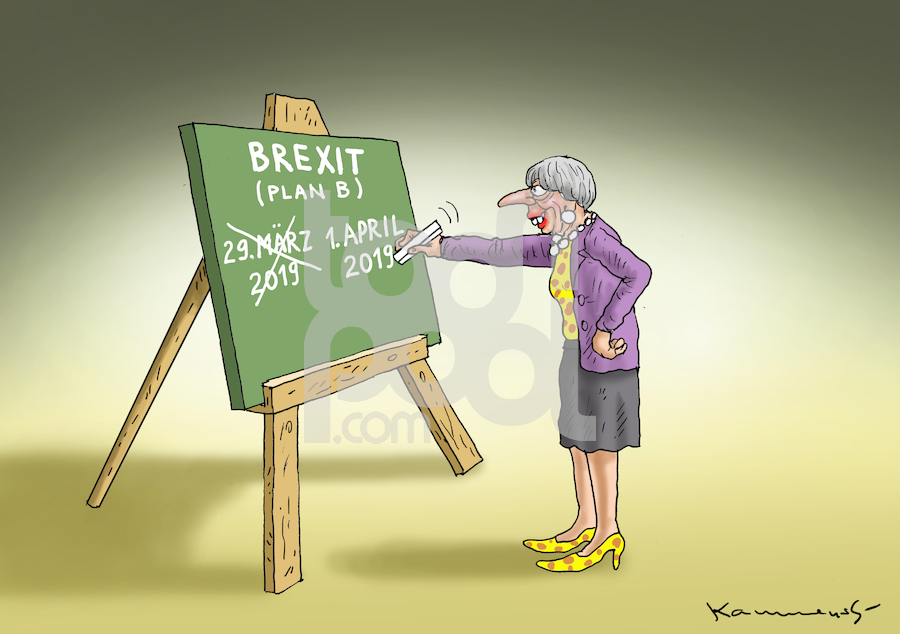 BREXIT
(PLAN B)
29. MÄRZ 1. APRIL
2019 2019
toonpool
.com